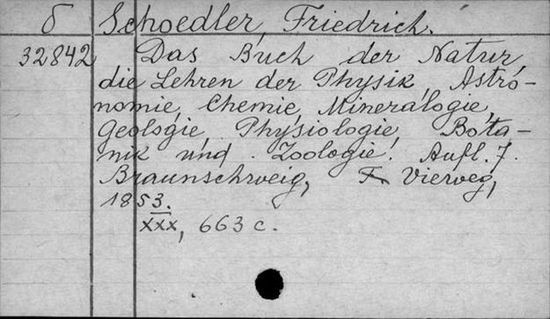 б Schoedler, Friedrich.
32842 Das Buch der Natur,
die Lehren der Physik, Astro-
nomie, Chemie, Mineralogie,
Geologie, Physiologie, Bota-
nik und Zoologie. Aufl. 7.
Braunschweig, F. Vierweg,
1853.
XXX, 663 c.